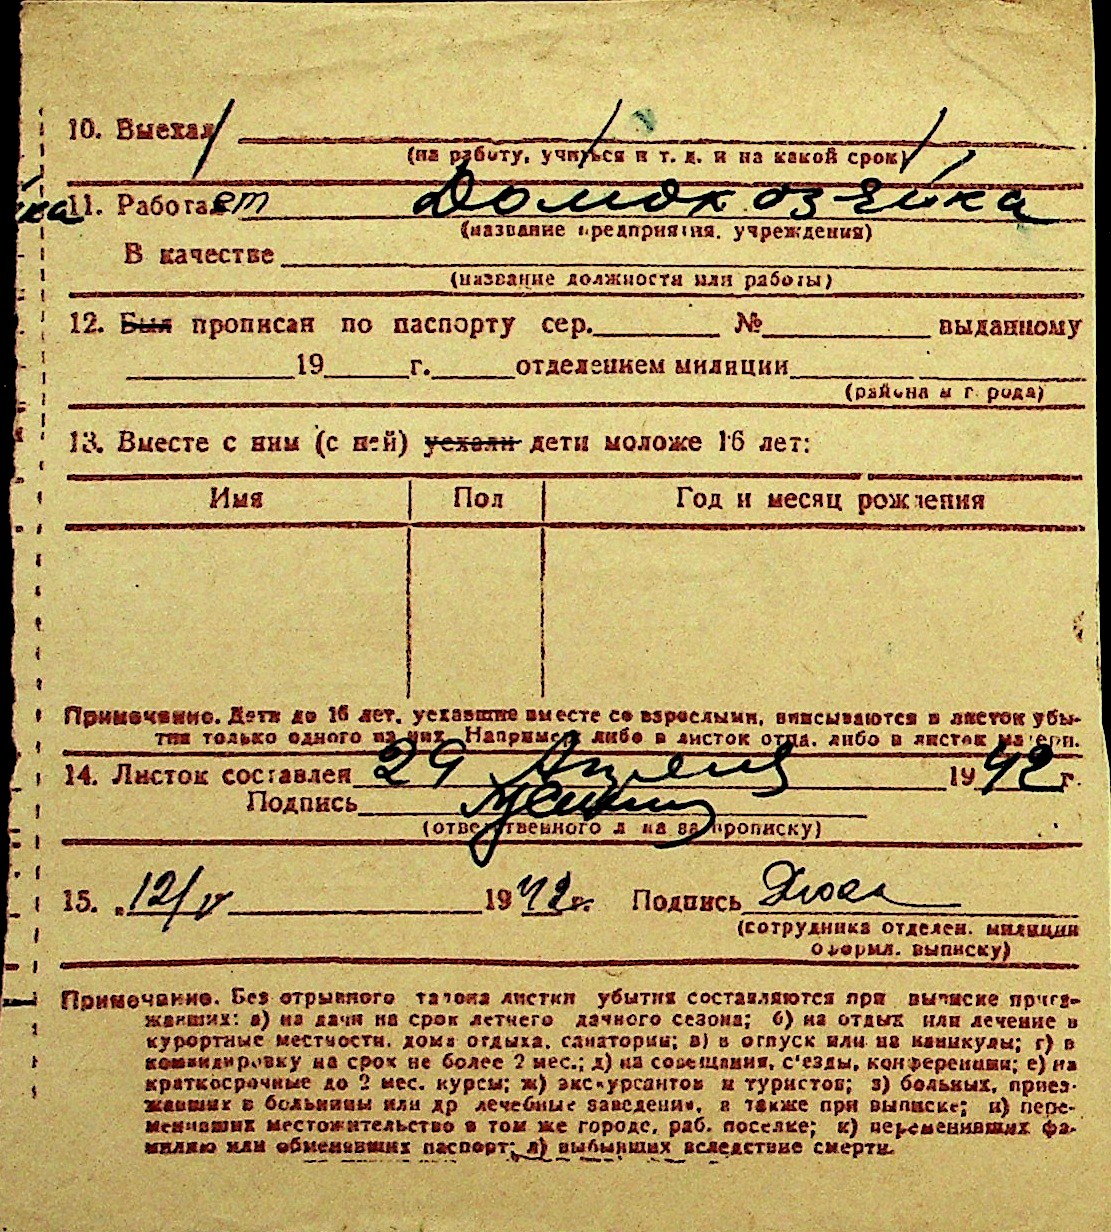 10. Выехал
(на работу, учиться и т. д. и на какой срок)
ка
11. Работает Домохозяйка
(название предприятия, учреждения)
В качестве
(название должности или работы)
12. Был прописан по паспорту сер. № выданному
19 г. отделением милиции
(района и города)
13. Вместе с ним (с ней) уехали дети моложе 16 лет:
Имя Пол Год и месяц рождения
Примечание. Дети до 16 лет, уехавшие вместе со взрослыми, вписываются в листок убы-
тия только одного из них. Например либо в листок отца, либо в листок матери.
14. Листок составлен 29 Апреля 1942 г.
Подпись
(ответственного л на за прописку)
15. 12/V 1942 г. Подпись
(сотрудника отделен. милиции
оформл. выписку)
Примечание. Без отрывного талона листки убытия составляются при выписке приез-
жавших: а) на дачи на срок летнего дачного сезона; б) на отдых или лечение в
курортные местности, дома отдыха, санатории; в) в отпуск или на каникулы; г) в
командировку на срок не более 2 мес.; д) на совещания, с'езды, конференции; е) на
краткосрочные до 2 мес. курсы; ж) экскурсантов и туристов; з) больных, приез-
жавших в больницы или др лечебные заведения, а также при выписке; и) пере-
менивших местожительство в том же городе, раб. поселке; к) переменивших фа-
милию или обменявших паспорт; л) выбывших вследствие смерти.